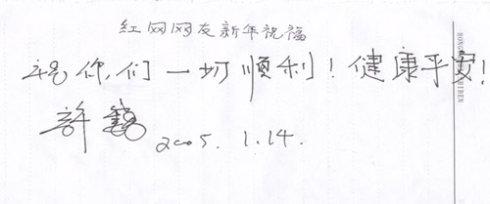 红网网友新年祝福
祝你们一切顺利！健康平安！
許
2005. 1.14.